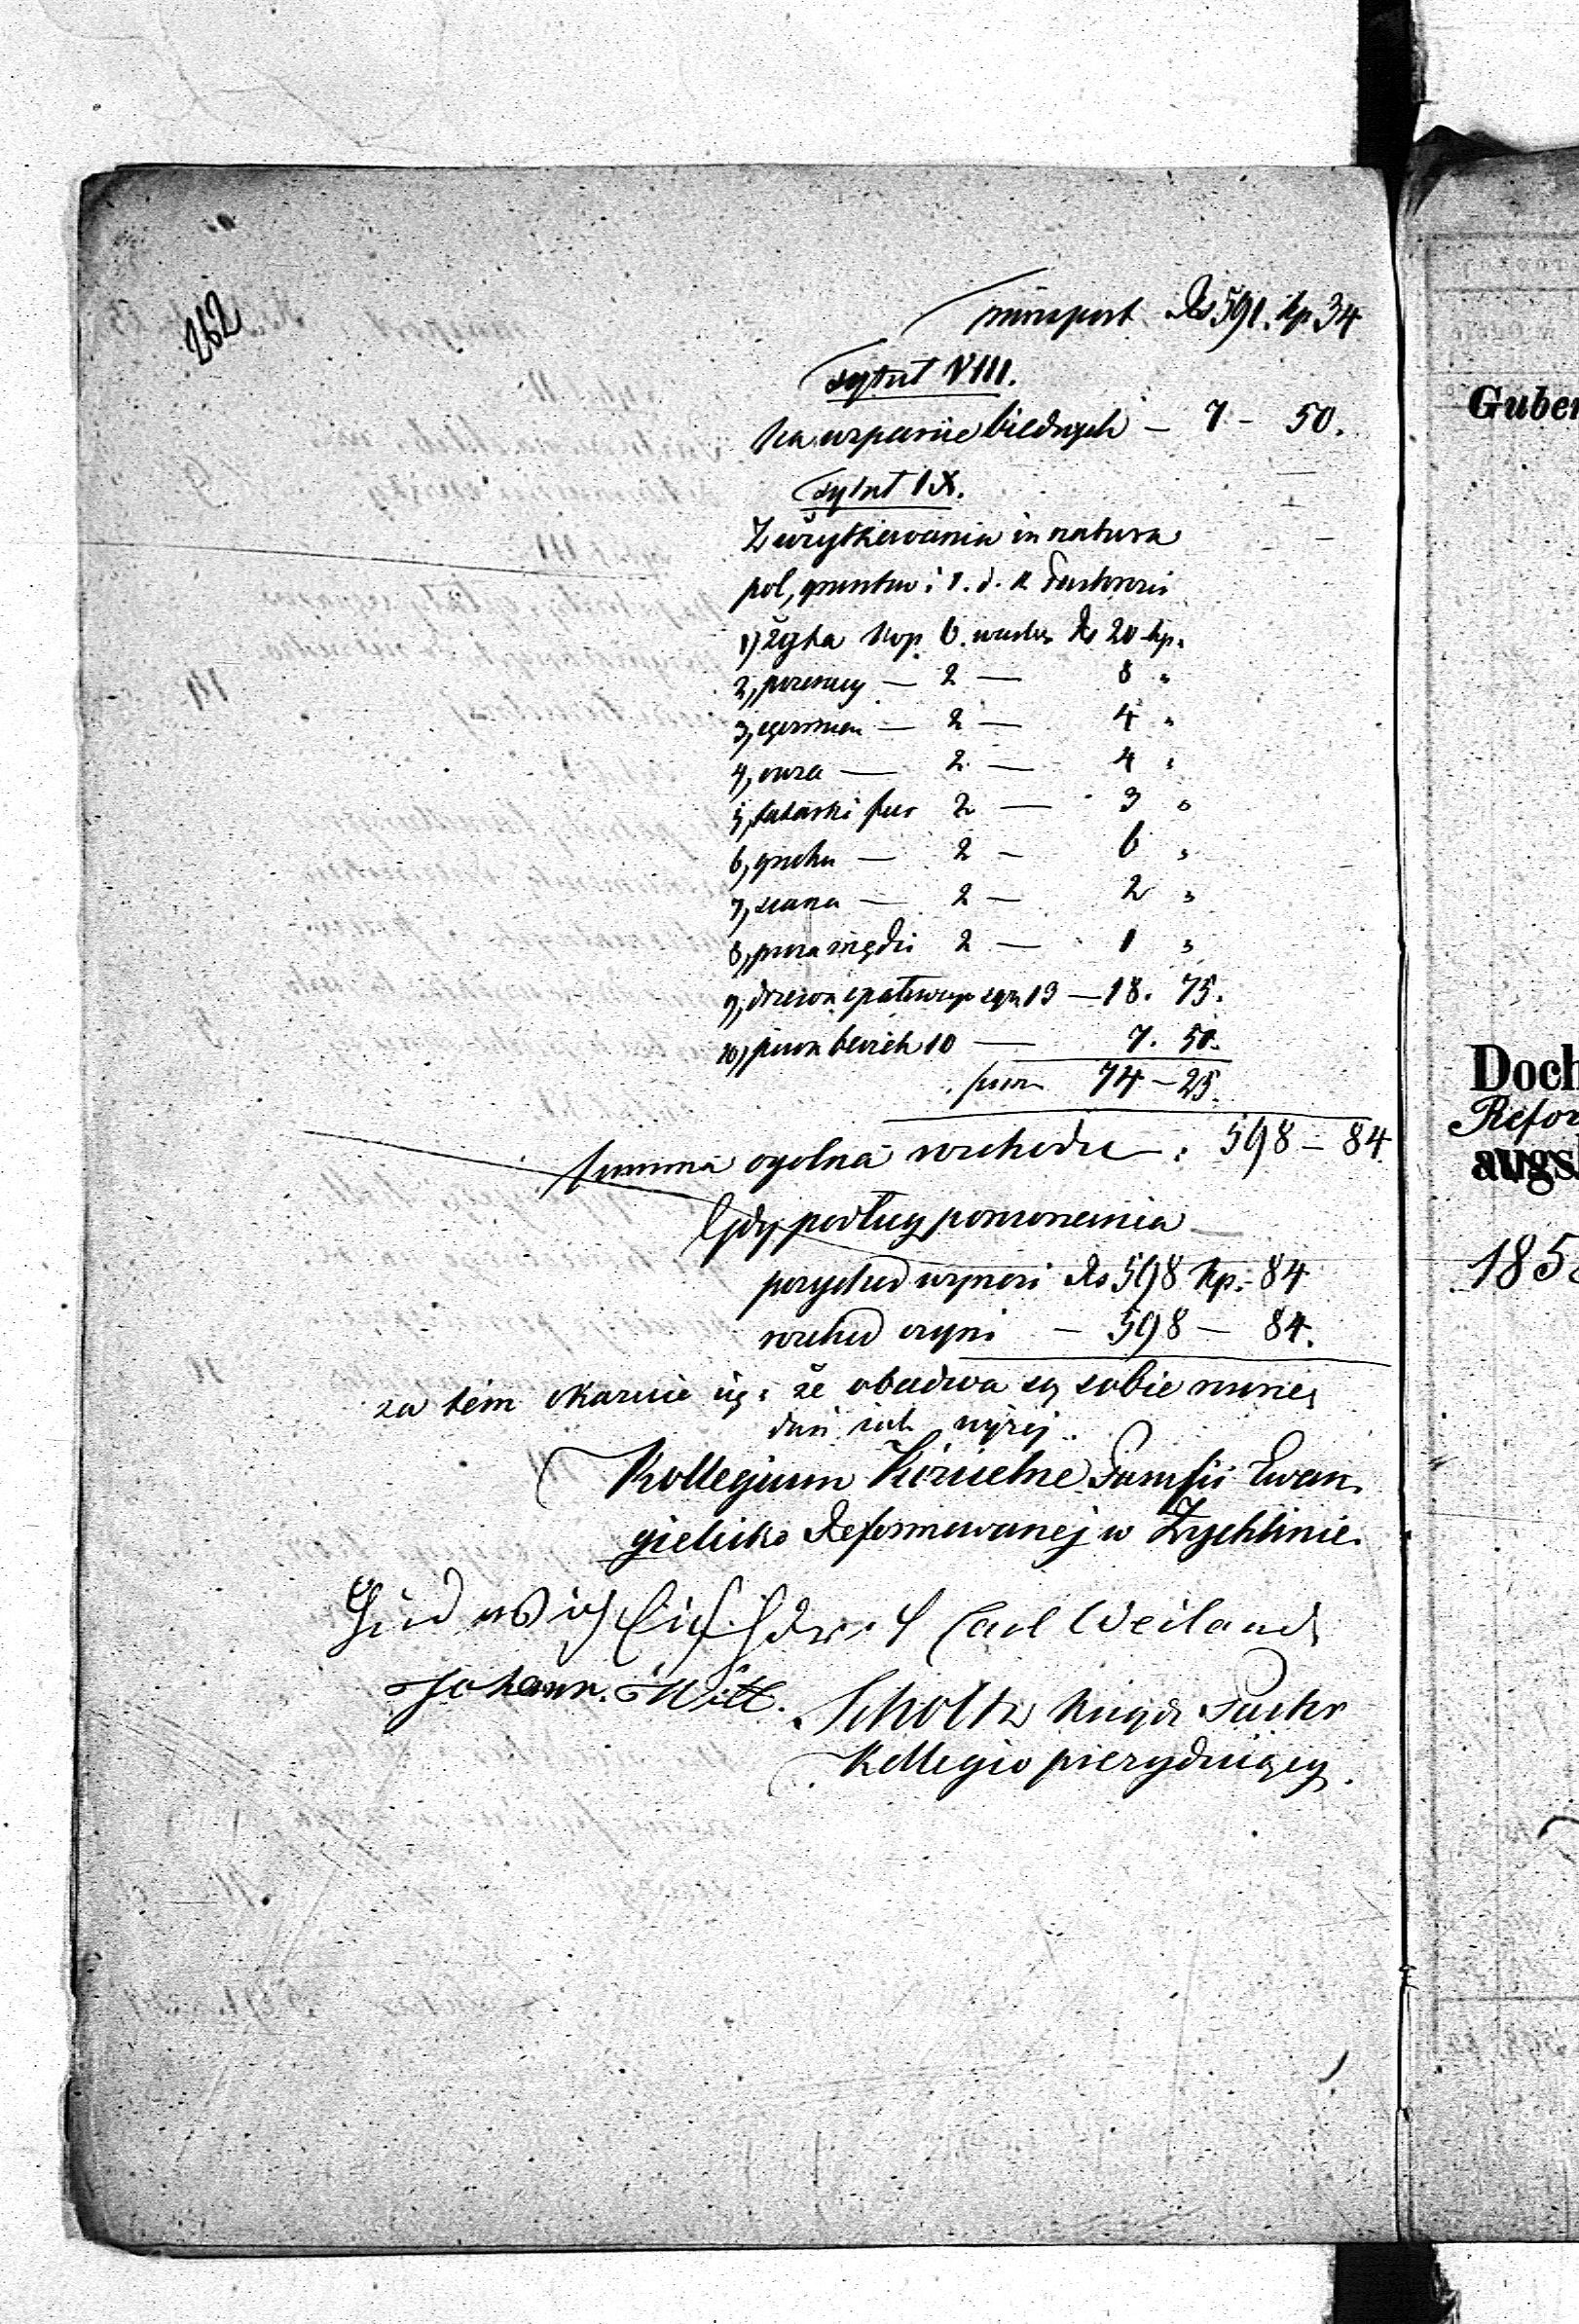 262
Transport Rs 591. kp 34
Tytuł VIII.
Na wsparcie biednych — 7 — 50.
Tytuł IX.
Z użytkowania in natura
pol, gruntów i t. d.
1) żyta kop 6. Rs 20 kp.
2, pszenicy — 2 — 8 "
3, jęczmien — 2 — 4 "
4, owsa — 2 — 4 "
5, tatarki fur 2 — 3 "
6, grochu — 2 — 6 "
7, siana — 2 — 2 "
8, 2 — 1 "
9, drzewa opałowego sąż 13 — 18. 75.
10, 10 — 7. 50.
74 — 25.
Summa ogolna rozchodu : 598 — 84
Gdy podług porownania
przychod wynosi Rs 598 kp. 84
rozchod czyni — 598 — 84.
za tem okazuie się, że obadwa są sobie rowne,
iak wyżej.
Kollegium Kościelne Parafii Ewan
gielicko Reformowanej w Zychlinie.
Carl Weiland
Johann Witt. Scholtz Xiądz Pastor
Kollegio prezydujący.
Guber
Doch
Refor
augs
185